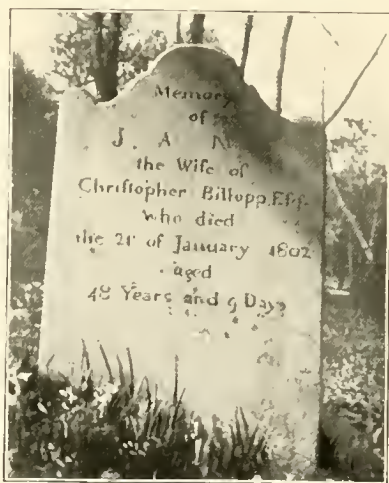 Memory
of
J A N
the Wife of
Chriſtopher Billopp Eſq.
who died
the 21ᵗ of January 1802
aged
48 Years and 9 Days